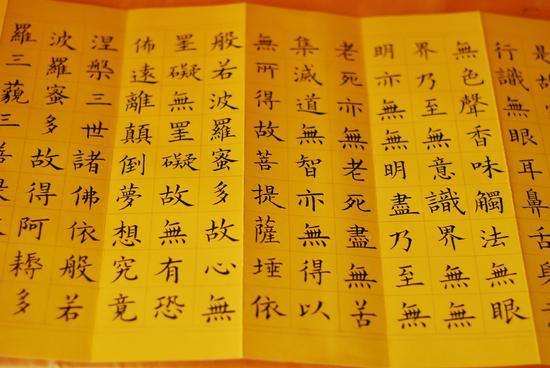 是故
行識無眼耳鼻舌身
無色聲香味觸法無眼
界乃至無意識界無無
明亦無無明盡乃至無
老死亦無老死盡無苦
集滅道無智亦無得以
無所得故菩提薩埵依
般若波羅蜜多故心無
罣礙無罣礙故無有恐
佈遠離顛倒夢想究竟
涅槃三世諸佛依般若
波羅蜜多故得阿耨多
羅三藐三菩